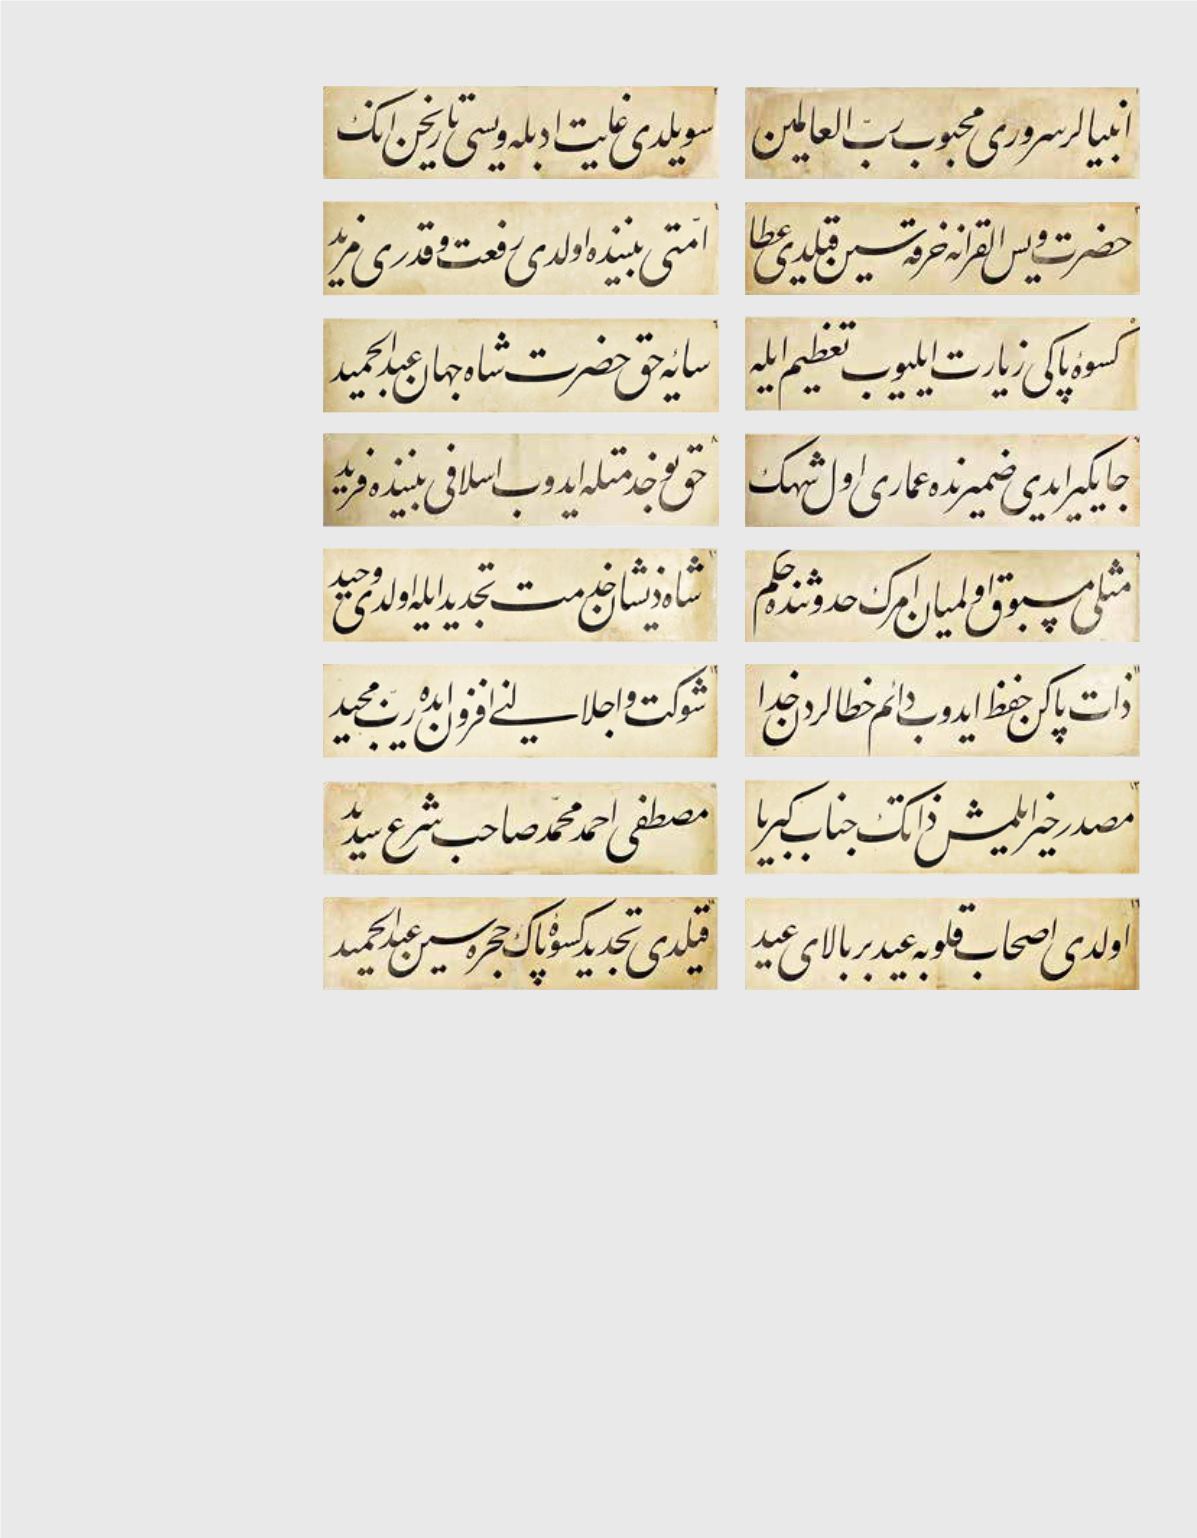 انبیالر سروری محبوب ربّ العالمین
سویلدی غایت ادبله ویسی تاریخن انک
حضرت ویس القرانه خرقه سین قیلدی عطا
امّتی بیننده اولدی رفعت و قدری مزید
کسوۀ پاکی زیارت ایلیوب تعظیم ایله
سایۀ حق حضرت شاه جهان عبدالحمید
جایکیر ایدی ضمیرنده عماری اول شهک
حق بو خدمتله ایدوب اسلافی بیننده فرید
مثلی مسبوق اولمیان امرک حدوثنده حکم
شاه ذیشان خدمت تجدید ایله اولدی وحید
ذات پاکن حفظ ایدوب دائم خطالردن خدا
شوکت و اجلالنی افزون ایده ربّ مجید
مصدر خیر ایلمش ذاتک جناب کبریا
مصطفی احمد محمّد صاحب شرع سدید
اولدی اصحاب قلوبه عید بر بالای عید
قیلدی تجدید کسوۀ پاک حجره سین عبدالحمید